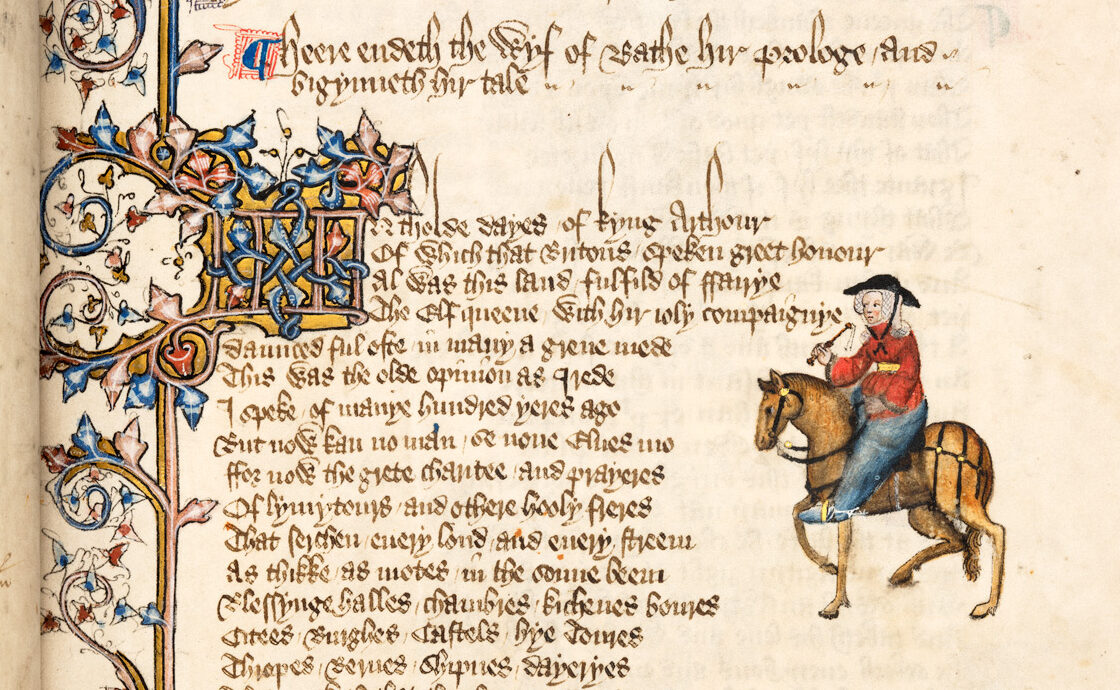 Heere endeth the Wyf of Bathe hir prologe / and
bigynneth hir tale
In tholde dayes / of kyng Arthour
Of which that Britons / speken greet honour
Al was this land / fulfild of ffairye
The Elf queene / with hir ioly compaignye
Daunced ful ofte / in many a grene mede
This was the olde opinion as I rede
I speke / of manye hundred yeres ago
But now kan no man / se none Elues mo
ffor now the grete charitee / and prayeres
Of lymytours / and othere hooly freres
That serchen / euery lond / and euery streem
As thikke / as motes / in the sonne beem
Blessynge halles / chambres / kichenes boures
Citees / Burghes / Castels / hye Toures
Thropes / Bernes / Shipnes / dayeryes